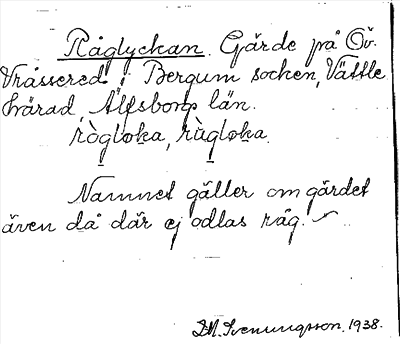 Råglyckan. Gärde på Öv.
Vråssered i Bergum socken, Vättle
härad, Älfsborgs län.
rògloka, rùgloka.
Namnet gäller om gärdet
även då där ej odlas råg.
D.M. Svenungsson. 1938.